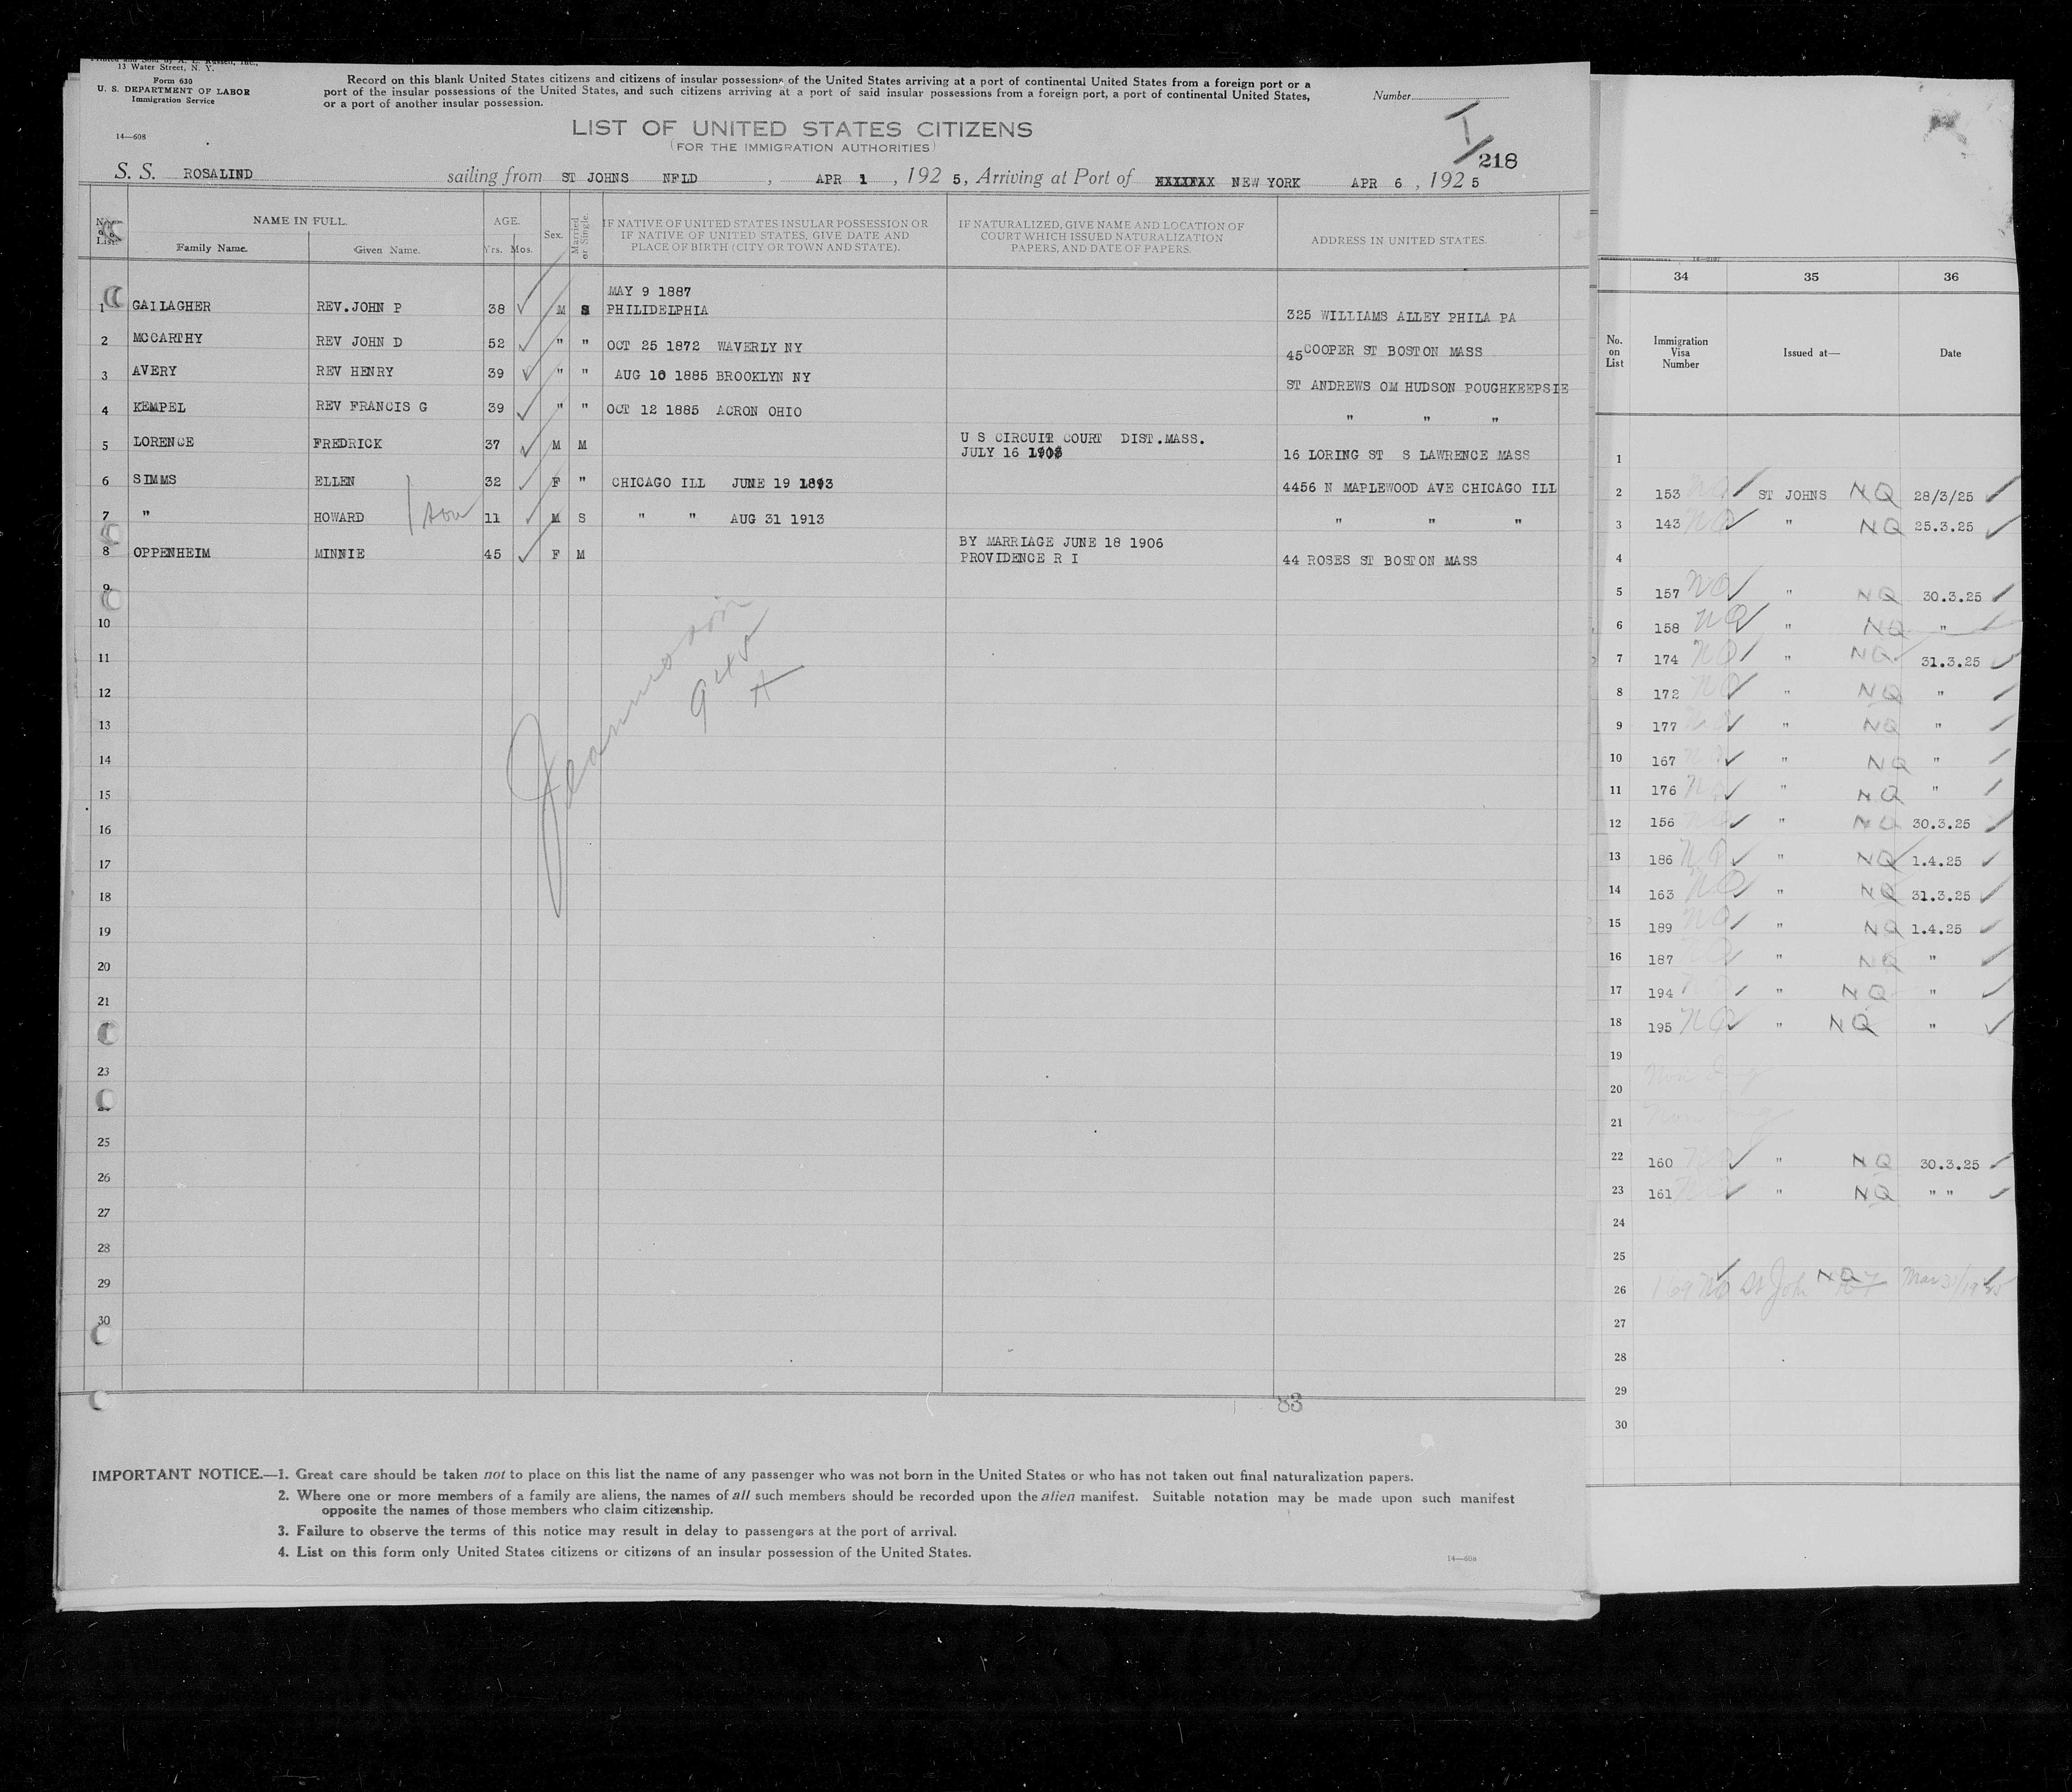 13 Water Street, N. Y.
Form 630
U. S. DEPARTMENT OF LABOR
Immigration Service
14—608
Record on this blank United States citizens and citizens of insular possessions of the United States arriving at a port of continental United States from a foreign port or a
port of the insular possessions of the United States, and such citizens arriving at a port of said insular possessions from a foreign port, a port of continental United States,
or a port of another insular possession.
Number
LIST OF UNITED STATES CITIZENS
(FOR THE IMMIGRATION AUTHORITIES)
I
218
S. S. ROSALIND sailing from ST JOHNS NFLD , APR 1 , 192 5, Arriving at Port of HALIFAX NEW YORK APR 6 , 192 5
No. on List. NAME IN FULL. AGE. Sex. Married or Single. IF NATIVE OF UNITED STATES INSULAR POSSESSION OR IF NATIVE OF UNITED STATES, GIVE DATE AND PLACE OF BIRTH (CITY OR TOWN AND STATE). IF NATURALIZED, GIVE NAME AND LOCATION OF COURT WHICH ISSUED NATURALIZATION PAPERS, AND DATE OF PAPERS. ADDRESS IN UNITED STATES.
Family Name. Given Name. Yrs. Mos.
MAY 9 1887
1 GALLAGHER REV.JOHN P 38 M S PHILIDELPHIA 325 WILLIAMS ALLEY PHILA PA
2 MCCARTHY REV JOHN D 52 " " OCT 25 1872 WAVERLY NY 45 COOPER ST BOSTON MASS
3 AVERY REV HENRY 39 " " AUG 10 1885 BROOKLYN NY ST ANDREWS OM HUDSON POUGHKEEPSIE
4 KEMPEL REV FRANCIS G 39 " " OCT 12 1885 ACRON OHIO " " "
U S CIRCUIT COURT DIST.MASS.
5 LORENCE FREDRICK 37 M M JULY 16 16 LORING ST S LAWRENCE MASS
6 SIMMS ELLEN 32 F " CHICAGO ILL JUNE 19 1893 4456 N MAPLEWOOD AVE CHICAGO ILL
7 " HOWARD son 11 M S " " AUG 31 1913 " " "
BY MARRIAGE JUNE 18 1906
8 OPPENHEIM MINNIE 45 F M PROVIDENCE R I 44 ROSES ST BOSTON MASS
9
10
11
12
13
14
15
16
17
18
19
20
21
23
25
26
27
28
29
30
83
IMPORTANT NOTICE.—1. Great care should be taken not to place on this list the name of any passenger who was not born in the United States or who has not taken out final naturalization papers.
2. Where one or more members of a family are aliens, the names of all such members should be recorded upon the alien manifest. Suitable notation may be made upon such manifest
opposite the names of those members who claim citizenship.
3. Failure to observe the terms of this notice may result in delay to passengers at the port of arrival.
4. List on this form only United States citizens or citizens of an insular possession of the United States.
14—608
34 35 36
No. on List Immigration Visa Number Issued at— Date
1
2 153 NQ ST JOHNS NQ 28/3/25
3 143 NQ " NQ 25.3.25
4
5 157 NQ " NQ 30.3.25
6 158 NQ " NQ "
7 174 NQ " NQ 31.3.25
8 172 NQ " NQ "
9 177 NQ " NQ "
10 167 NQ " NQ "
11 176 NQ " NQ "
12 156 NQ " NQ 30.3.25
13 186 NQ " NQ 1.4.25
14 163 NQ " NQ 31.3.25
15 189 NQ " NQ 1.4.25
16 187 NQ " NQ "
17 194 " NQ "
18 195 NQ " NQ "
19
20
21
22 160 NQ " NQ 30.3.25
23 161 NQ " NQ " "
24
25
26 169 NQ St John NQ Mar 31/1925
27
28
29
30